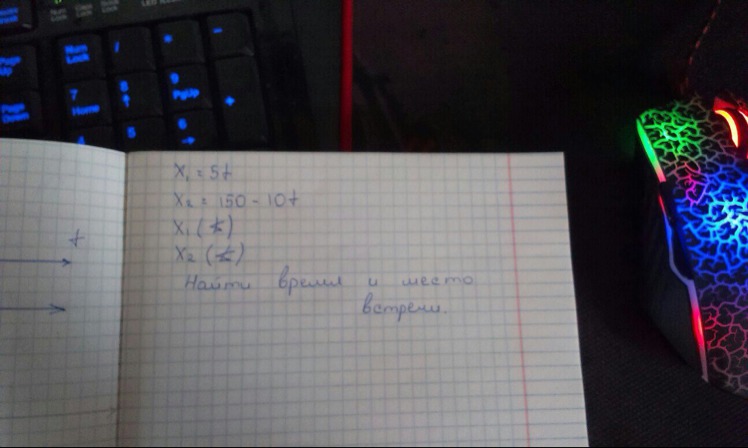 Num Lock
LED
Page Up
Num Lock
/
*
-
Page Down
7 Home
8 ↑
9 PgUp
+
4
5
6 →
X₁ = 5t
X₂ = 150 - 10t
X₁ (
X₂ (
Найти время и место
встречи.
t